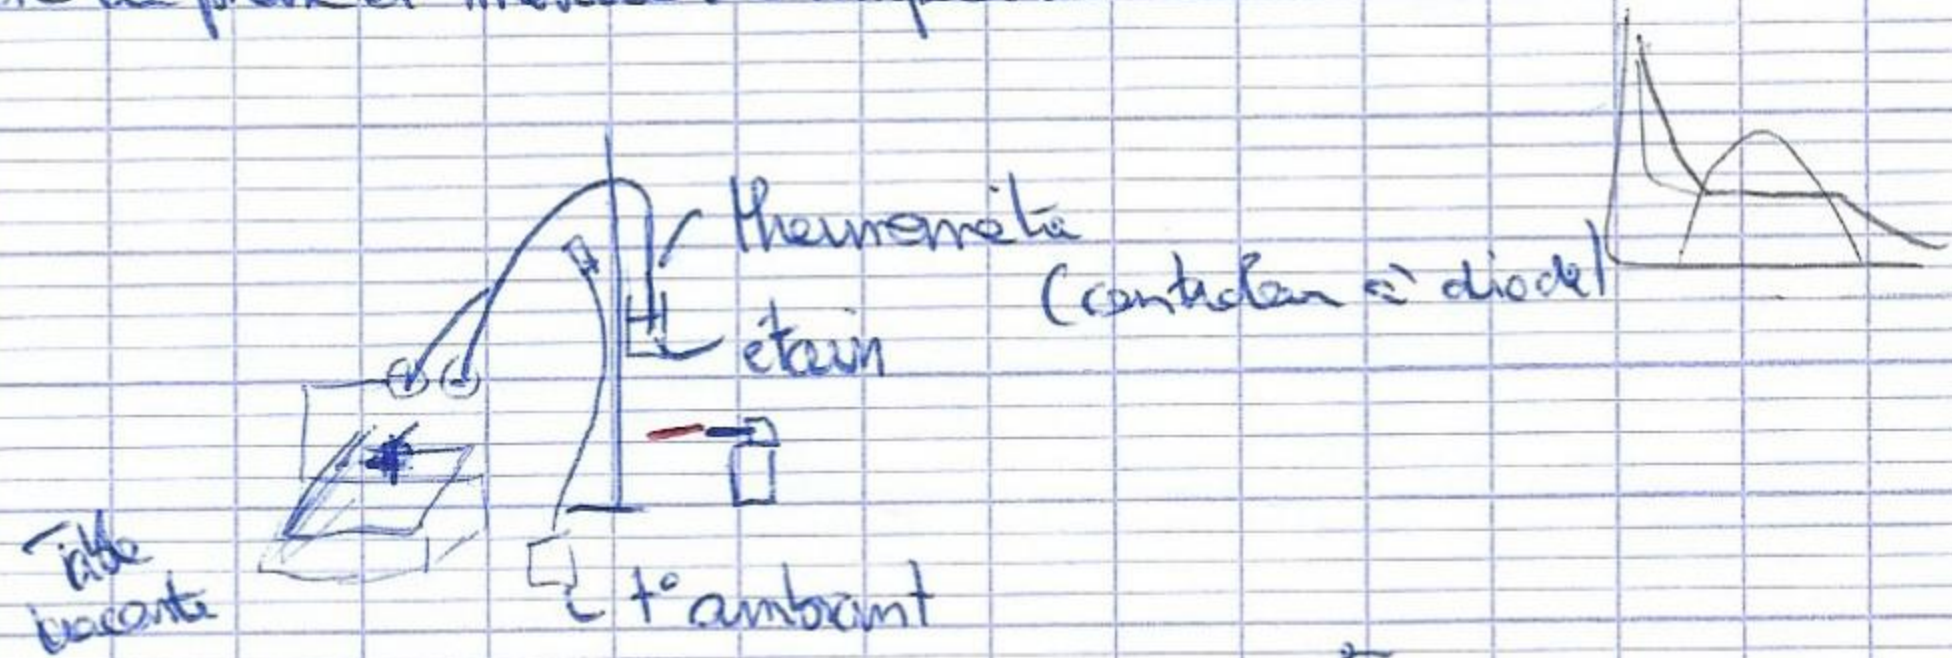 thermomètre
(contrôleur à diode)
étain
Table
traçante
t° ambiant